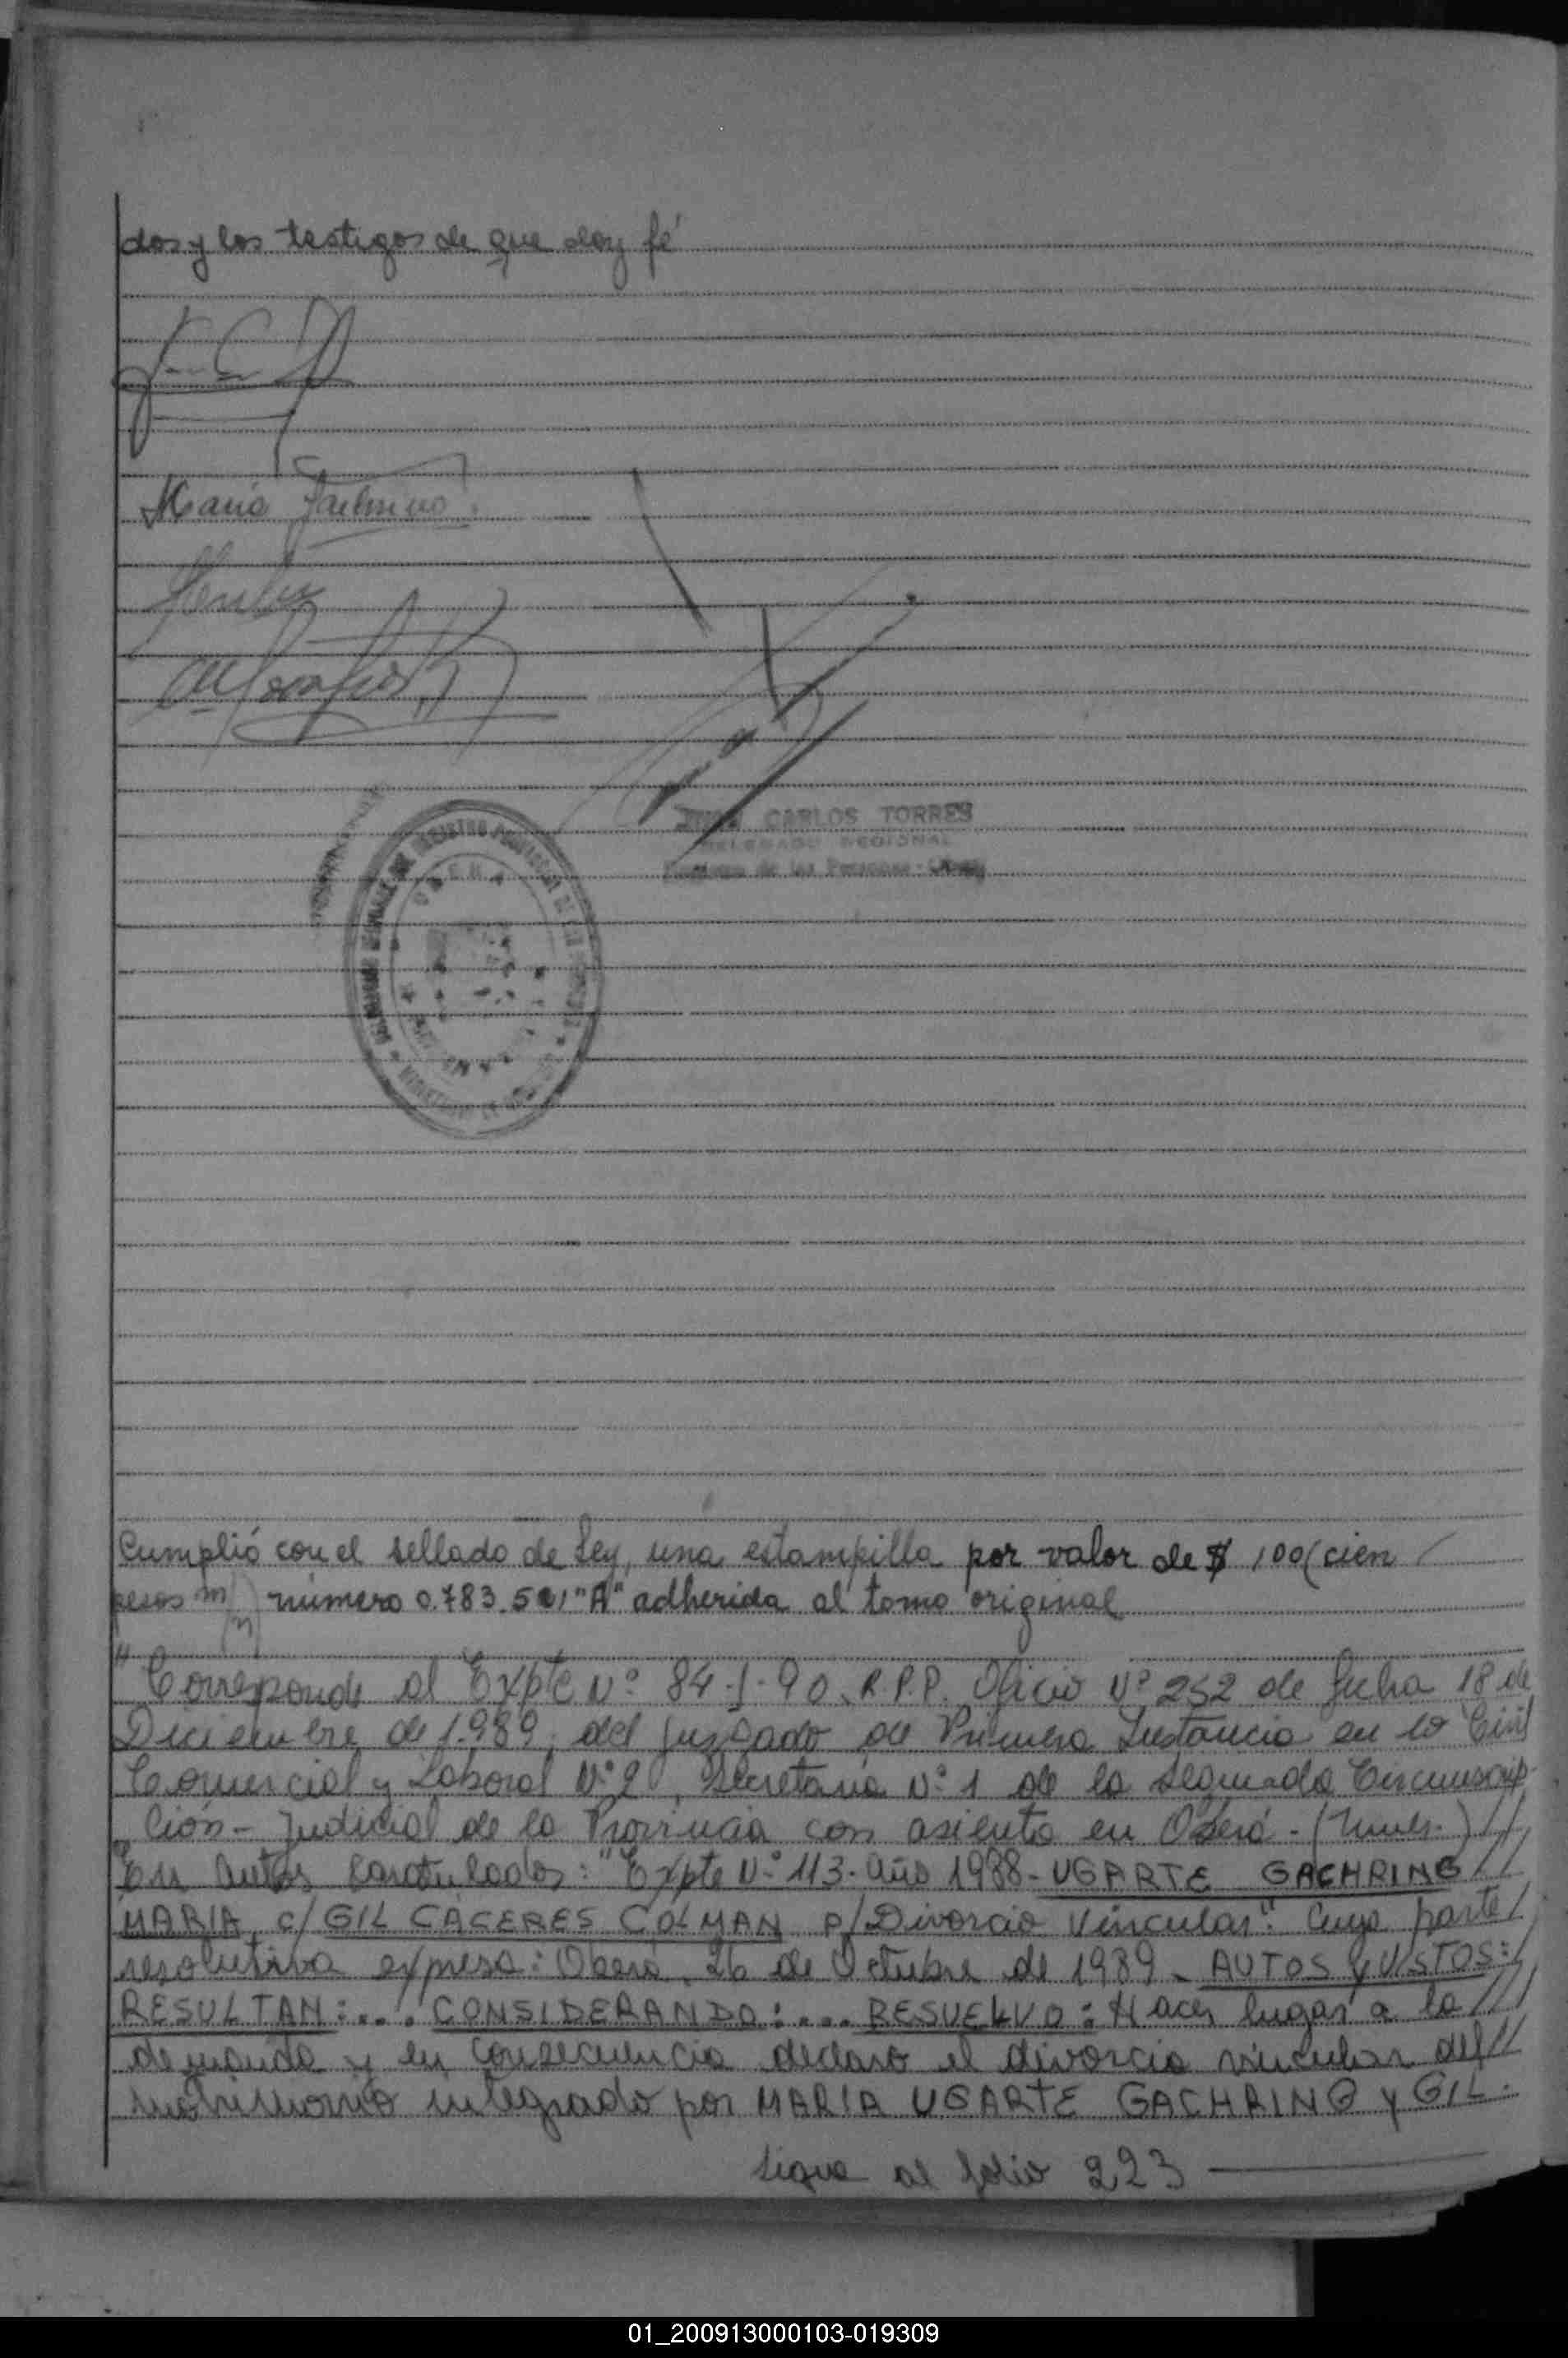 dos y los testigos de que doy fé
Maria
JUAN CARLOS TORRES
DELEGADO REGIONAL
de las Personas
Cumplió con el sellado de Ley, una estampilla por valor de $ 100 (cien
pesos m/n) número 0.783.501 "A" adherida al tomo original
"Corresponde al Expte Nº 84-J-90. R.P.P. Oficio Nº 252 de fecha 18 de
Diciembre de 1.989, del Juzgado de Primera Instancia en lo Civil
Comercial y Laboral Nº 2, Secretaria Nº 1 de la Segunda Circunscrip-
ción - Judicial de la Provincia con asiento en Oberá - (Mnes.) //
"En Autos Caratulados: "Expte Nº 113. Año 1988 - UGARTE GACHRING //
MARIA c/ GIL CACERES COLMAN p/ Divorcio Vincular". Cuya parte /
resolutiva expresa: Oberá, 26 de Octubre de 1989 - AUTOS y VISTOS: /
RESULTAN:... CONSIDERANDO:... RESUELVO: Hacer lugar a la ///
demanda y en consecuencia declaro el divorcio vincular del //
matrimonio integrado por MARIA UGARTE GACHRING y GIL.
Sigue al folio 223
01_200913000103-019309